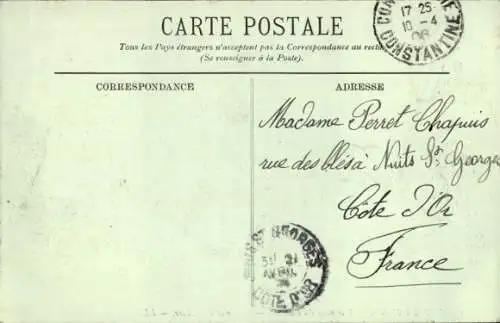 CARTE POSTALE
Tous les Pays étrangers n'acceptent pas la Correspondance au recto
(Se renseigner à la Poste).
CONSTANTINE
17 25
10 - 4
06
CONSTANTINE
CORRESPONDANCE
ADRESSE
Madame Perret Chapuis
rue des blés à Nuits St Georges
Côte d'Or
France
ST GEORGES
AVRIL
COTE D'OR